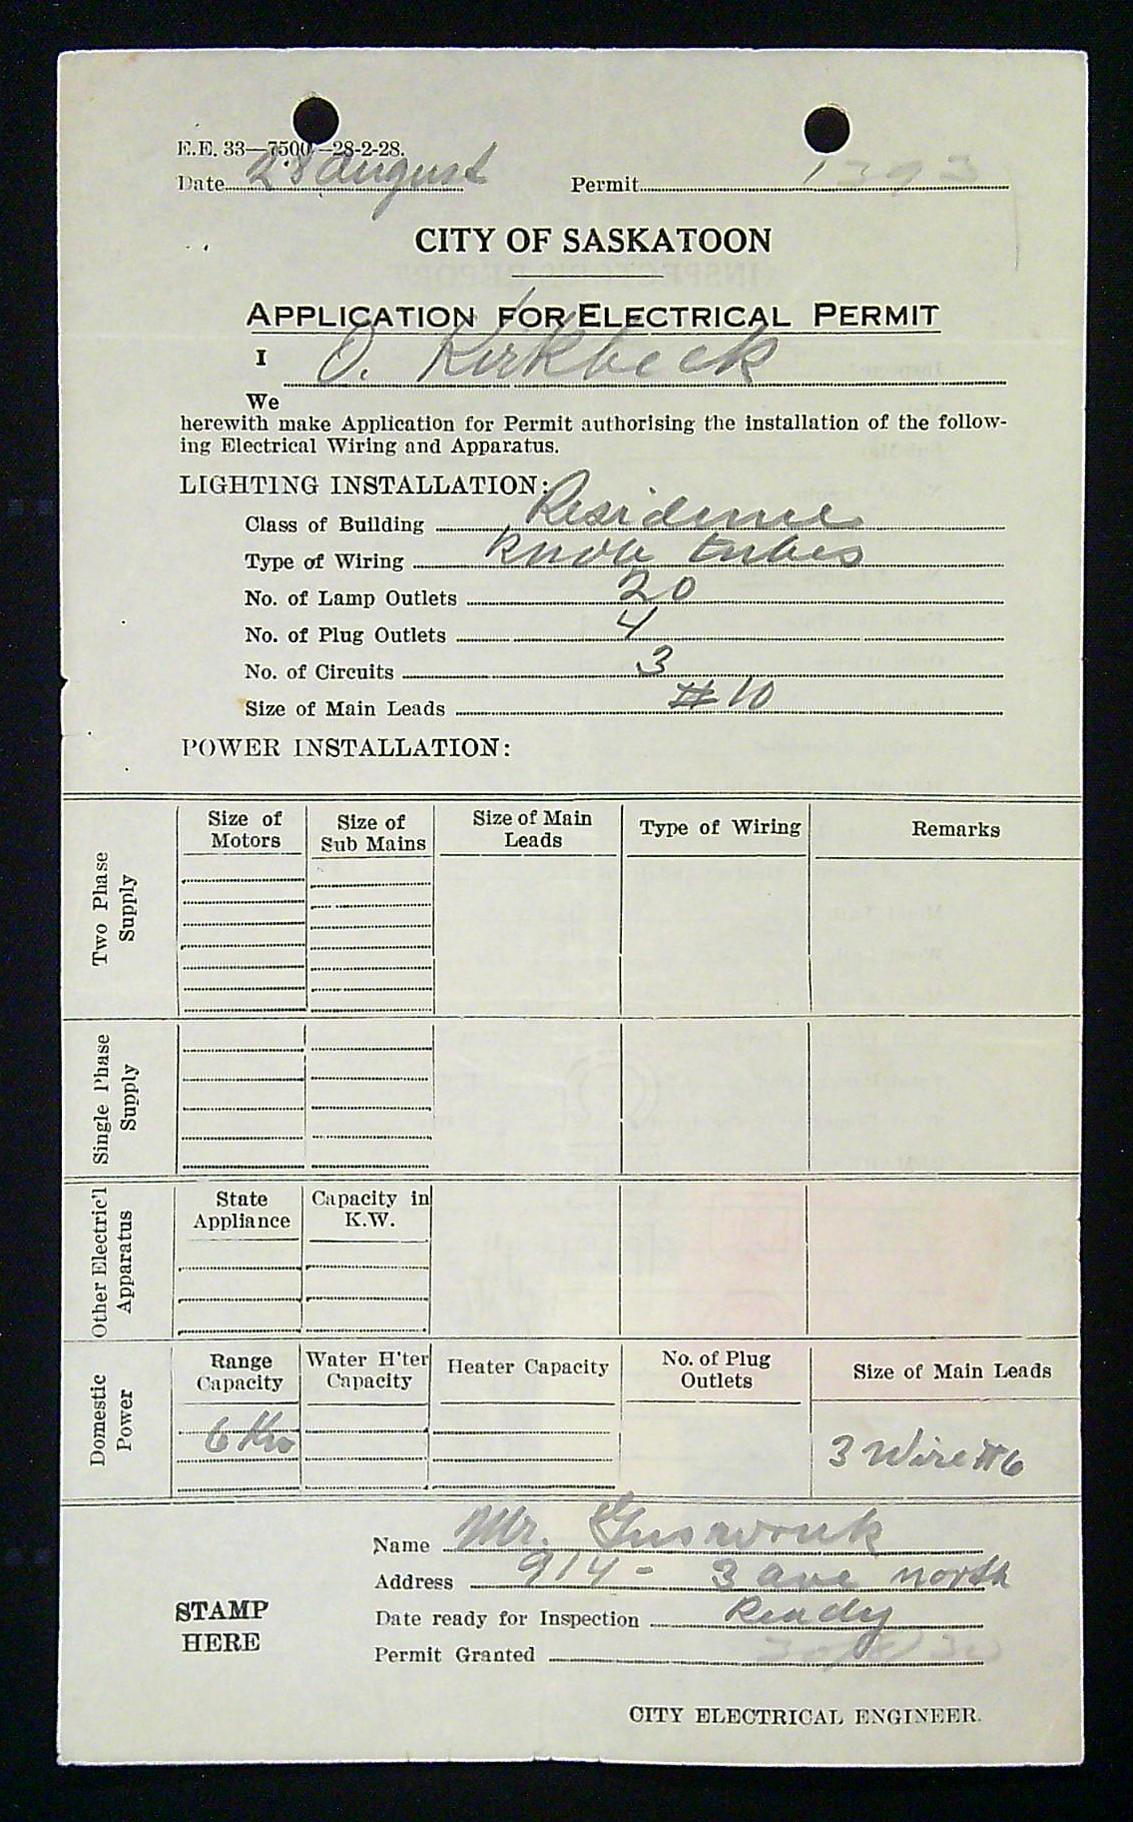 E.E. 33—7500—28-2-28.
Date 28 august Permit 1393
CITY OF SASKATOON
APPLICATION FOR ELECTRICAL PERMIT
I O. Kirkbeck
We
herewith make Application for Permit authorising the installation of the follow-
ing Electrical Wiring and Apparatus.
LIGHTING INSTALLATION:
Class of Building Residence
Type of Wiring Knob tubes
No. of Lamp Outlets 20
No. of Plug Outlets 4
No. of Circuits 3
Size of Main Leads #10
POWER INSTALLATION:
Two Phase
Supply
Size of
Motors
Size of
Sub Mains
Size of Main
Leads
Type of Wiring
Remarks
Single Phase
Supply
Other Electric'l
Apparatus
State
Appliance
Capacity in
K.W.
Domestic
Power
Range
Capacity
Water H'ter
Capacity
Heater Capacity
No. of Plug
Outlets
Size of Main Leads
6 Kw
3 Wire #6
Name Mr.
Address 914 - 3 ave north
Date ready for Inspection Ready
Permit Granted
STAMP
HERE
CITY ELECTRICAL ENGINEER.